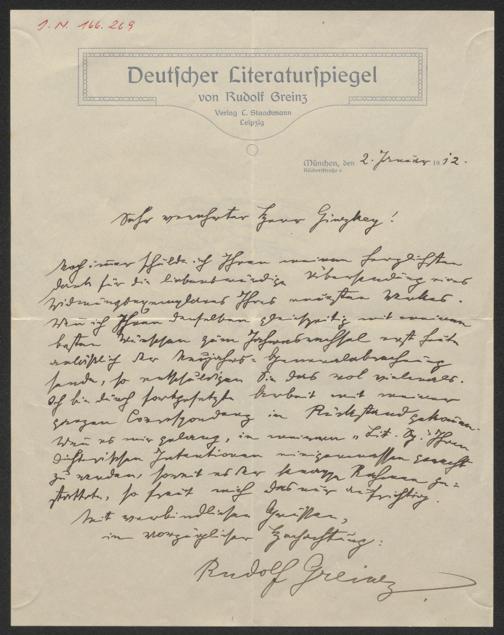 J. N. 166.269
Deutscher Literaturspiegel
von Rudolf Greinz
Verlag L. Staackmann
Leipzig
München, den 2. Januar 1912.
Sehr verehrter Herr Ginzkey!
Noch immer schulde ich Ihnen meinen herzlichsten
Dank für die liebenswürdige Übersendung eines
Widmungsexemplares Ihres neuesten Werkes.
Wenn ich Ihnen denselben gleichzeitig mit meinen
besten Wünschen zum Jahreswechsel erst heute
anläßlich der Neujahrs-Generalabrechnung
sende, so entschuldigen Sie das wol vielmals.
Ich bin durch fortgesetzte Arbeit mit meiner
ganzen Correspondenz in Rückstand gekommen.
Wenn es mir gelang, in meinem "Lit. Sp." Ihren
dichterischen Intentionen einigermassen gerecht
zu werden, soweit es der knappe Rahmen ge-
stattete, so freut mich das nur aufrichtig.
Mit verbindlichen Grüssen,
in vorzüglicher Hochachtung:
Rudolf Greinz